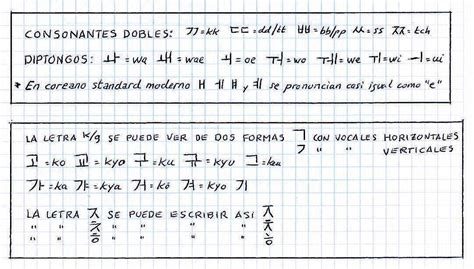 CONSONANTES DOBLES: ㄲ=kk ㄸ=dd/tt ㅃ=bb/pp ㅆ=ss ㅉ=tch
DIPTONGOS: ㅘ=wa ㅙ=wae ㅚ=oe ㅝ=wo ㅞ=we ㅟ=wi ㅢ=ui
* En coreano standard moderno ㅐ y ㅖ se pronuncian casi igual como "e"
LA LETRA K/g SE PUEDE VER DE DOS FORMAS ㄱ CON VOCALES HORIZONTALES
ㄱ " " VERTICALES
고=ko 교=kyo 구=ku 규=kyu 그=keu
가=ka 갸=kya 거=kö 겨=kyo 기
LA LETRA ㅈ SE PUEDE ESCRIBIR ASÍ ㅈ
" " ㅊ " " " " ㅊ
" " ㅎ " " " " ㅎ